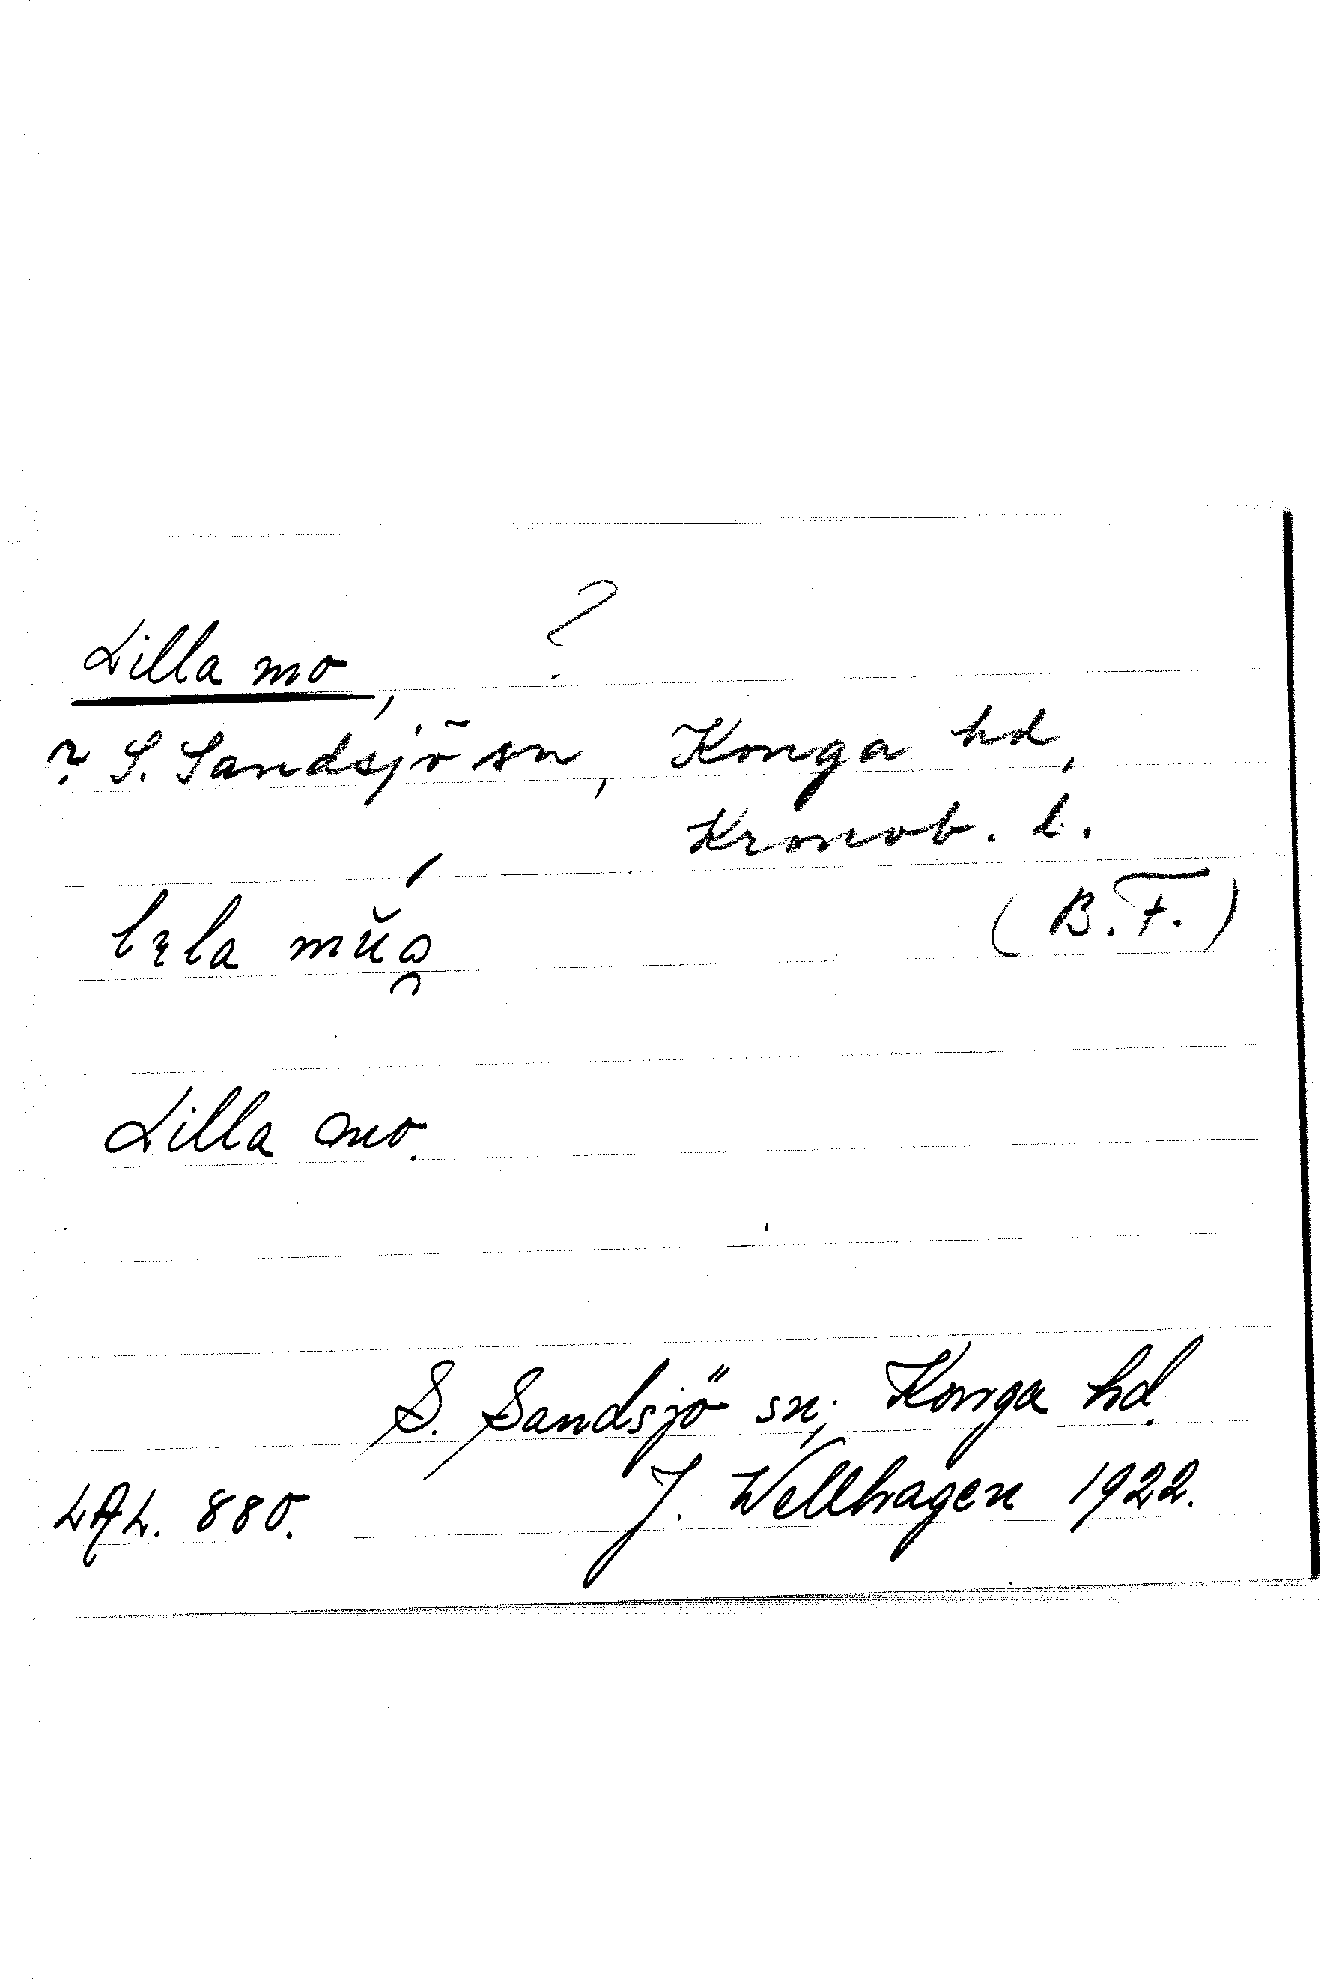 Lilla mo, ?
? S. Sandsjö sn, Konga hd,
Kronob. l.
(B.F.)
Lilla mo.
S. Sandsjö sn, Konga hd.
J. Wellhagen 1922.
LAL. 880.